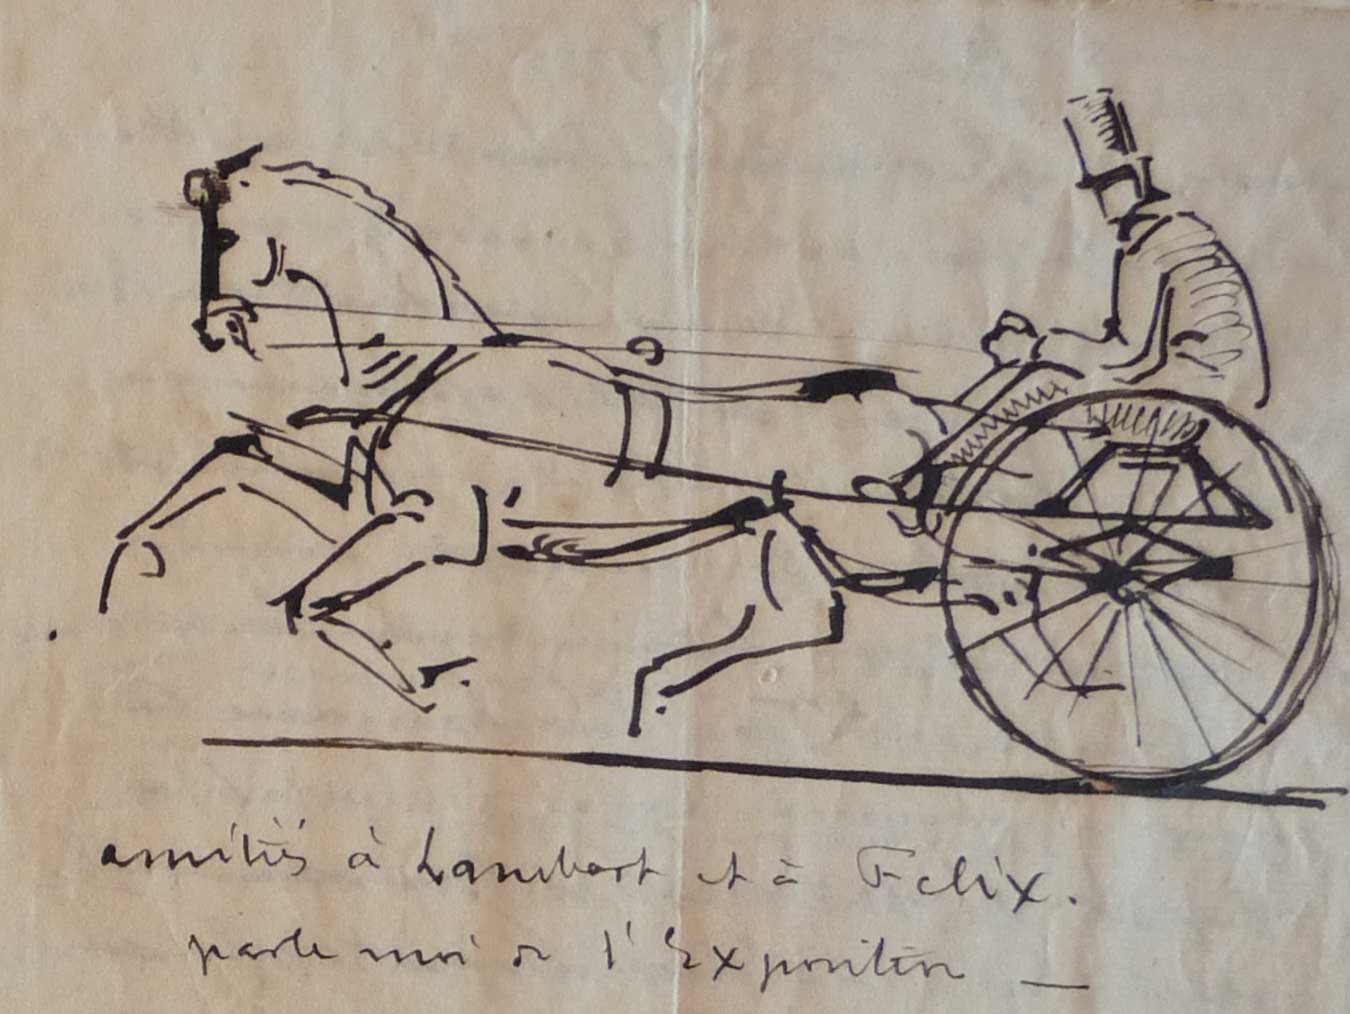 amitiés à Lambert et à Felix.
parle moi de l'Exposition _